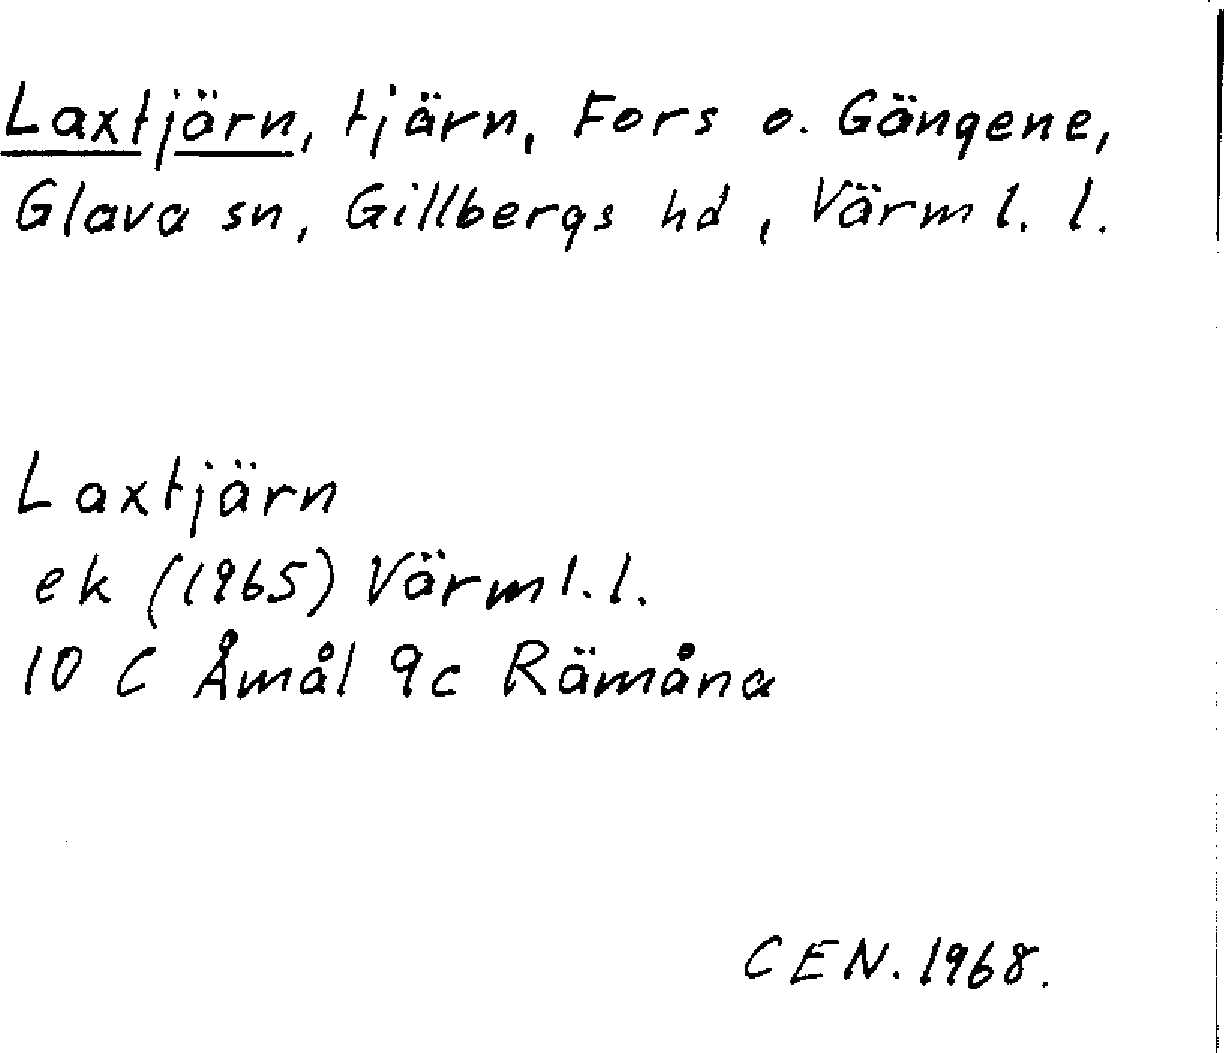 Laxtjärn, tjärn, Fors o. Gängene,
Glava sn, Gillbergs hd, Värml. l.
Laxtjärn
ek (1965) Värml. l.
10 C Åmål 9c Rämåna
CEN. 1968.